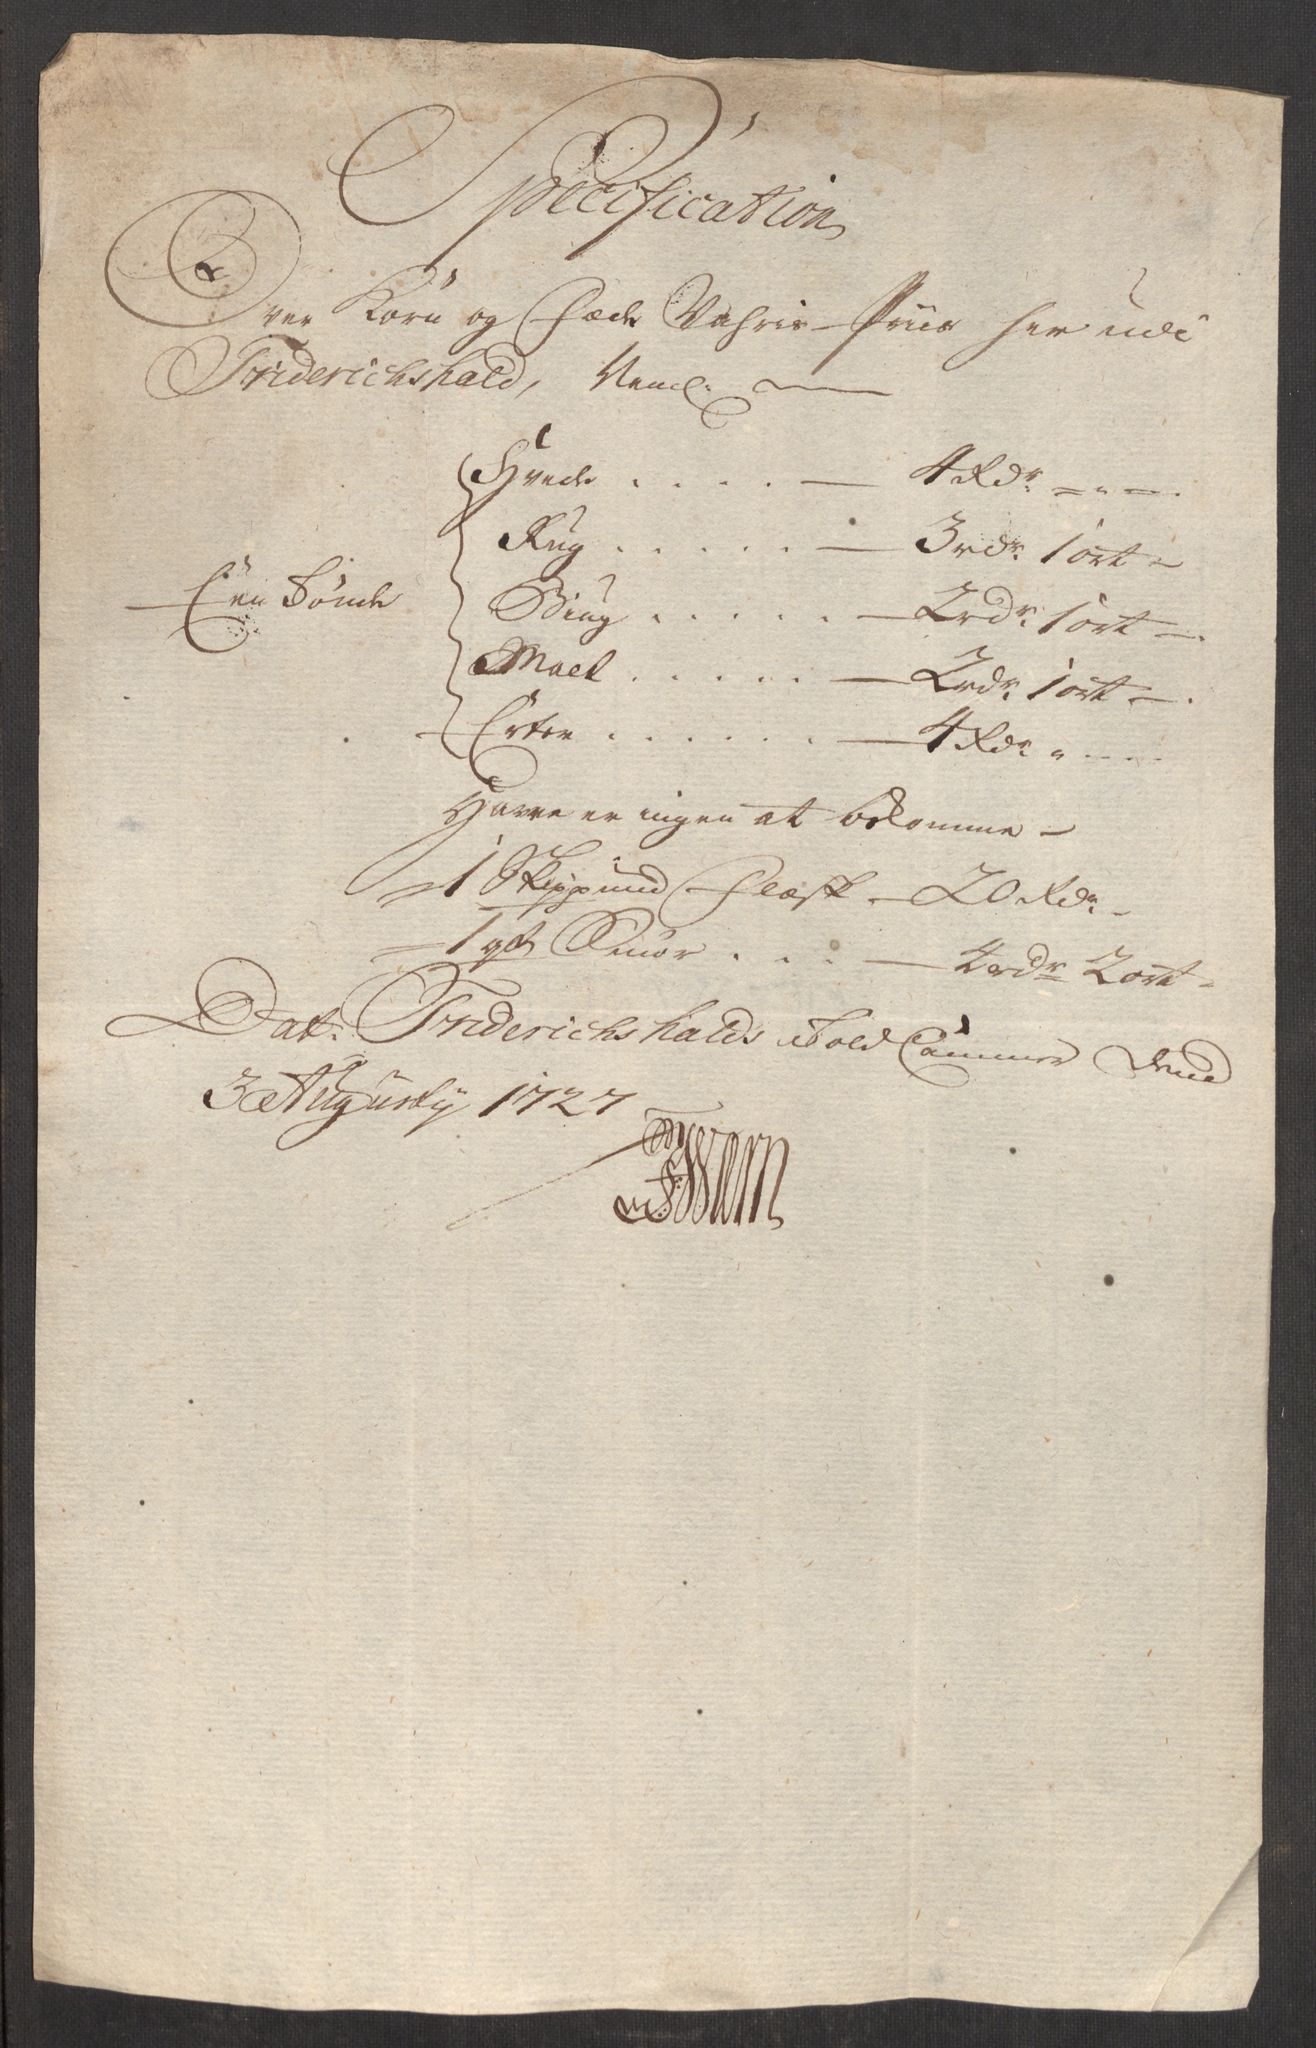 Specification
Over Korn og Fæde Vahris Priis her udi
Friderichshald, Neml:
Hvede . . . . — 4 Rdr — " —
Rug . . . . . — 3 rdr 1 ort —
Een Tønde
Biug . . . . . — 2 rdr 1 ort —
Malt . . . . . — 2 rdr 1 ort —
Erter . . . . . . — 4 Rdr " — —
Havre er ingen at bekomme —
1 Skippund Flæsk — 20 Rdr —
1 Smør . . . — 4 rdr 2 ort —
Dat: Friderichshalds Told Cammer Dend
3 Augusty 1727
Wærn